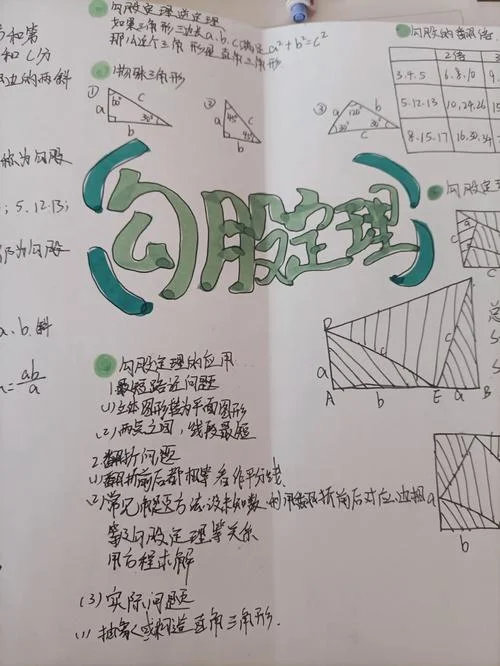 和第
和 C 分
边的两斜
称为勾股
; 5.12.13;
为勾股
a、b.斜
=ab/a
勾股定理逆定理
如果三角形三边长a、b、c满足a²+b²=c²
那么这个三角形是直角三角形
特殊三角形
① 60° a c 30° b
② 45° c a 45° b
③ a 120° b 30° 30° c
勾股定理
勾股定理的应用
1.最短路径问题
(1)立体图形转为平面图形
(2)两点之间，线段最短
2.翻折问题
(1)翻折前后都相等 作平分线
(2)常见 方法:设未知数,利用翻折前后对应边相
等及勾股定理等关系
用方程求解
(3)实际问题
(1)抽象或构造直角三角形.
勾股的
2倍 3
3.4.5 6.8.10 9
5.12.13 10,24.26 15
8.15.17 16.30.34
勾股定理
a c
c
D
a c c
A b E a B
总
S
S
a
b